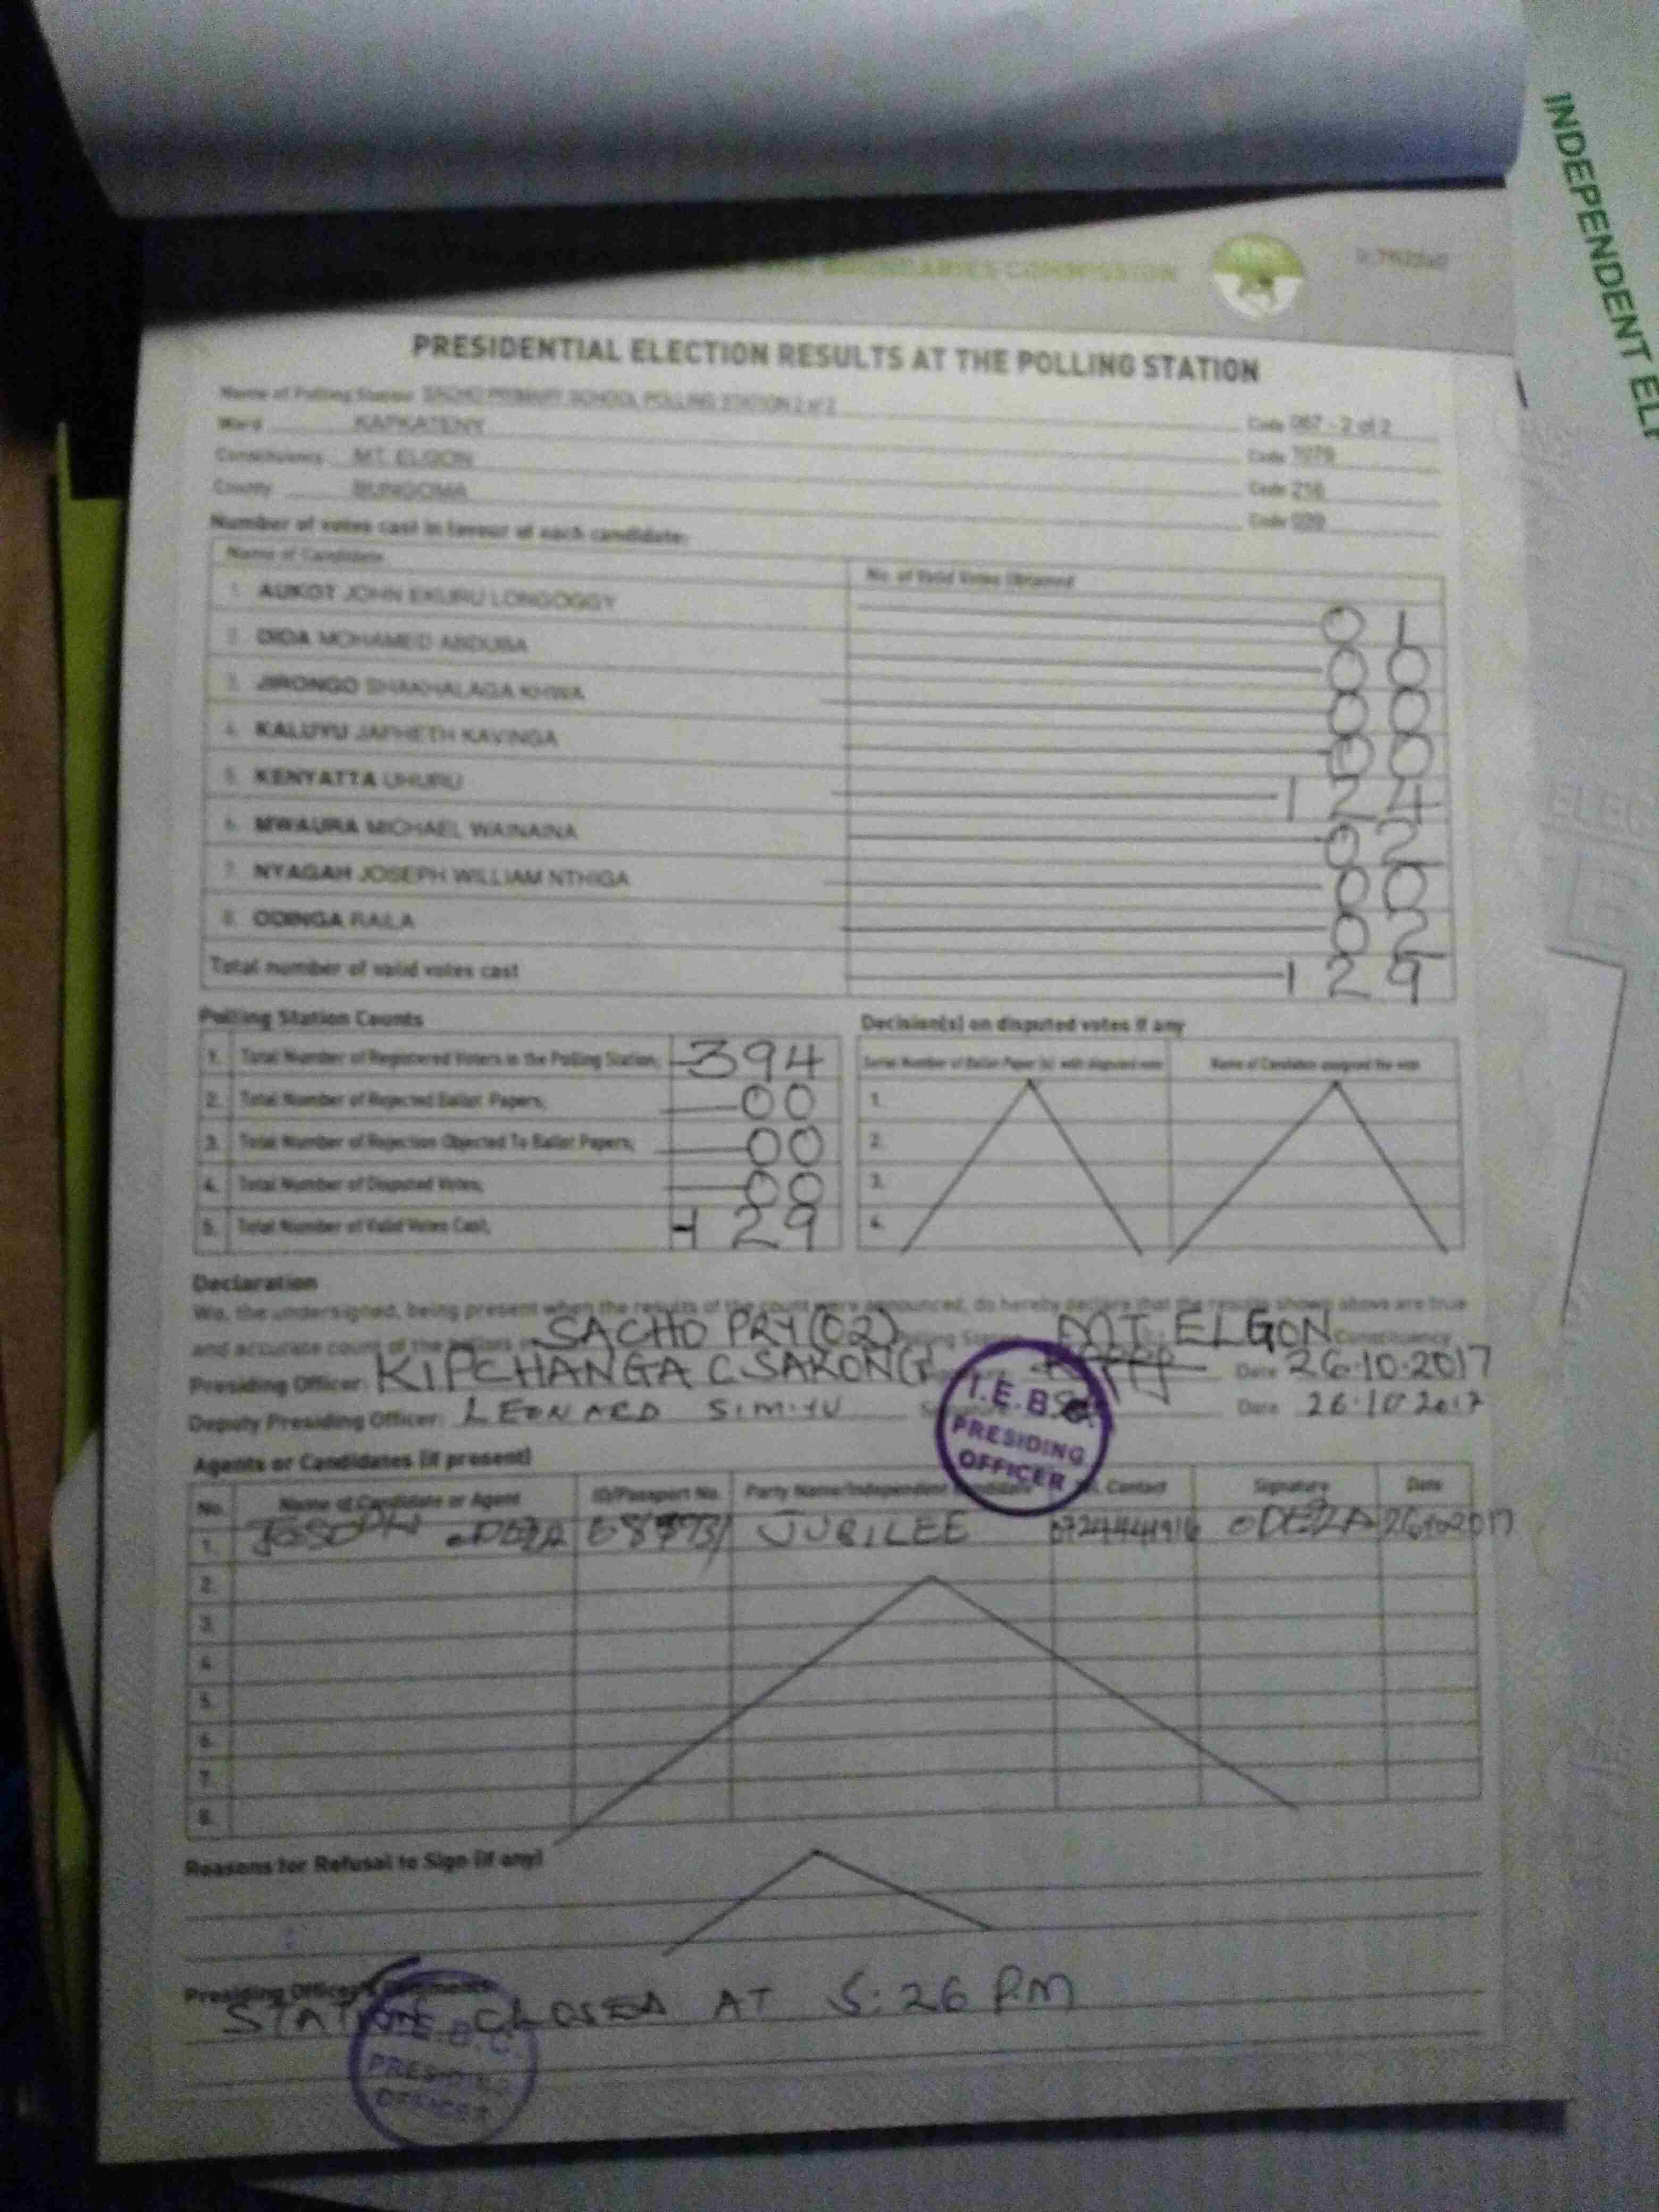 INDEPENDENT ELE
BOUNDARIES COMMISSION
PRESIDENTIAL ELECTION RESULTS AT THE POLLING STATION
Name of Polling Station SACHO PRIMARY SCHOOL POLLING STATION 2 of 2 Code 067 - 2 of 2
Ward KAPKATENY Code 1079
Constituency MT. ELGON Code 216
County BUNGOMA Code 039
Number of votes cast in favour of each candidate:
Name of Candidate No. of Valid Votes Obtained
1. AUKOT JOHN EKURU LONGOGGY 01
2. DIDA MOHAMED ABDUBA 00
3. JIRONGO SHAKHALAGA KHWA 00
4. KALUYU JAPHETH KAVINGA 00
5. KENYATTA UHURU 124
6. MWAURA MICHAEL WAINAINA 02
7. NYAGAH JOSEPH WILLIAM NTHIGA 00
8. ODINGA RAILA 02
Total number of valid votes cast 129
Polling Station Counts
1. Total Number of Registered Voters in the Polling Station; 394
2. Total Number of Rejected Ballot Papers; 00
3. Total Number of Rejection Objected To Ballot Papers; 00
4. Total Number of Disputed Votes; 00
5. Total Number of Valid Votes Cast; 129
Decision(s) on disputed votes if any
Serial Number of Ballot Paper (s) with disputed vote Name of Candidate assigned the vote
1.
2.
3.
4.
Declaration
We, the undersigned, being present when the results of the count were announced, do hereby declare that the results shown above are true
and accurate count of the ballots in SACHO PRY (02) Polling Station MT. ELGON Constituency
Presiding Officer: KIPCHANGA C. SAKONG Date 26.10.2017
Deputy Presiding Officer: LEONARD SIMIYU Date 26.10.2017
I.E.B.C.
PRESIDING
OFFICER
Agents or Candidates (if present)
No. Name of Candidate or Agent ID/Passport No. Party Name/Independent Candidate Contact Signature Date
1. JOSEPH JUBILEE
2.
3.
4.
5.
6.
7.
8.
Reasons for Refusal to Sign (if any)
Presiding Officer's Comments
STATION CLOSED AT 5:26 PM
I.E.B.C.
PRESIDING
OFFICER